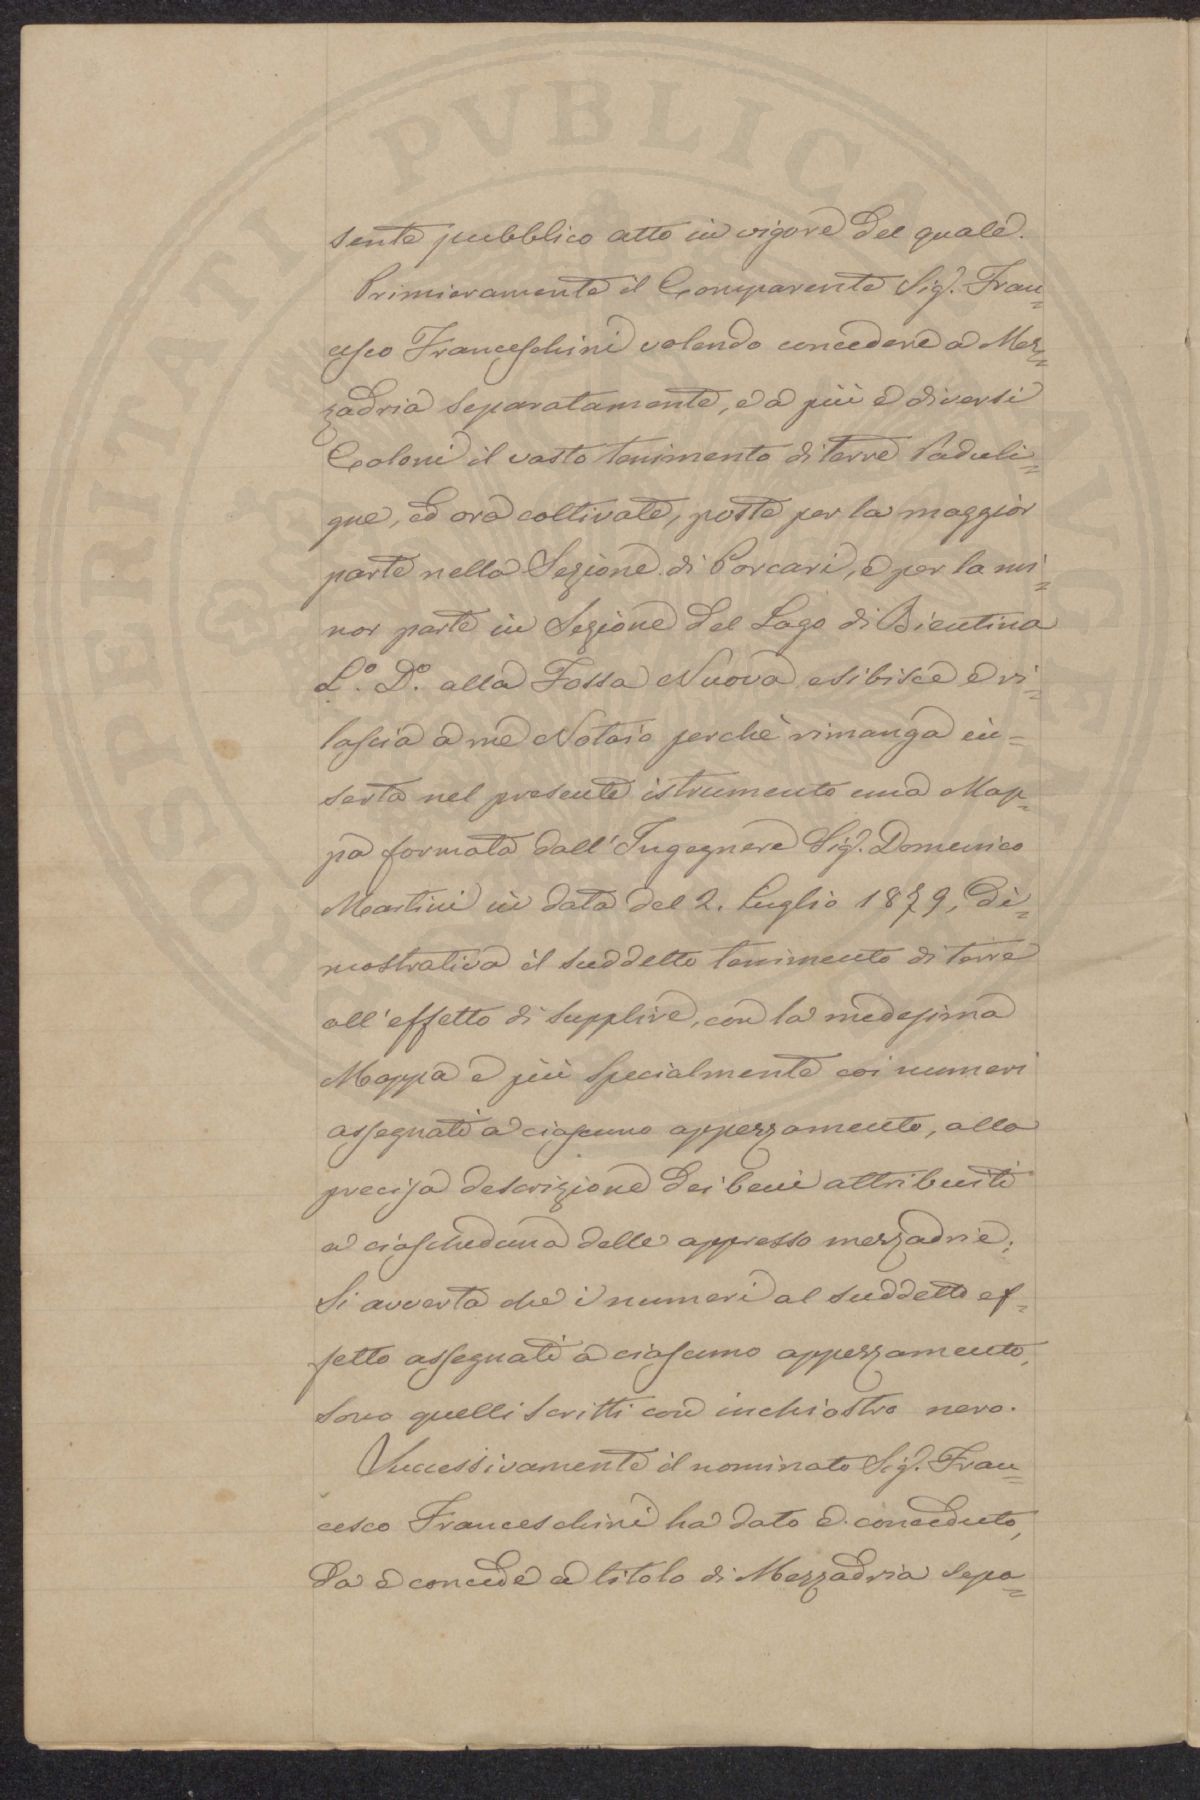 sente pubblico atto in vigore del quale.
Primieramente il Comparente Sig. Fran=
cesco Franceschini volendo concedere a Mez=
zadria separatamente, e a più e diversi
Coloni il vasto tenimento di terre Paduli=
gne, ed ora coltivate, poste per la maggior
parte nella Sezione di Porcari, e per la mi=
nor parte in Sezione del Lago di Bientina
L.º D.º alla Fossa Nuova esibisce e ri=
lascia a me Notaio perchè rimanga in=
serta nel presente istrumento una Map=
pa formata dall'Ingegnere Sig. Domenico
Martini in data del 2. Luglio 1879, di=
mostrativa il suddetto tenimento di terre
all'effetto di supplire, con la medesima
Mappa e più specialmente coi numeri
assegnati a ciascuno appezzamento, alla
precisa descrizione dei beni attribuiti
a ciascheduna delle appresso mezzadrie;
Si avverta che i numeri al suddetto ef=
fetto assegnati a ciascuno appezzamento,
sono quelli scritti con inchiostro nero.
Successivamente il nominato Sig. Fran=
cesco Franceschini ha dato e conceduto,
da e concede a titolo di Mezzadria sepa=
PROSPERITATI PVBLICAE